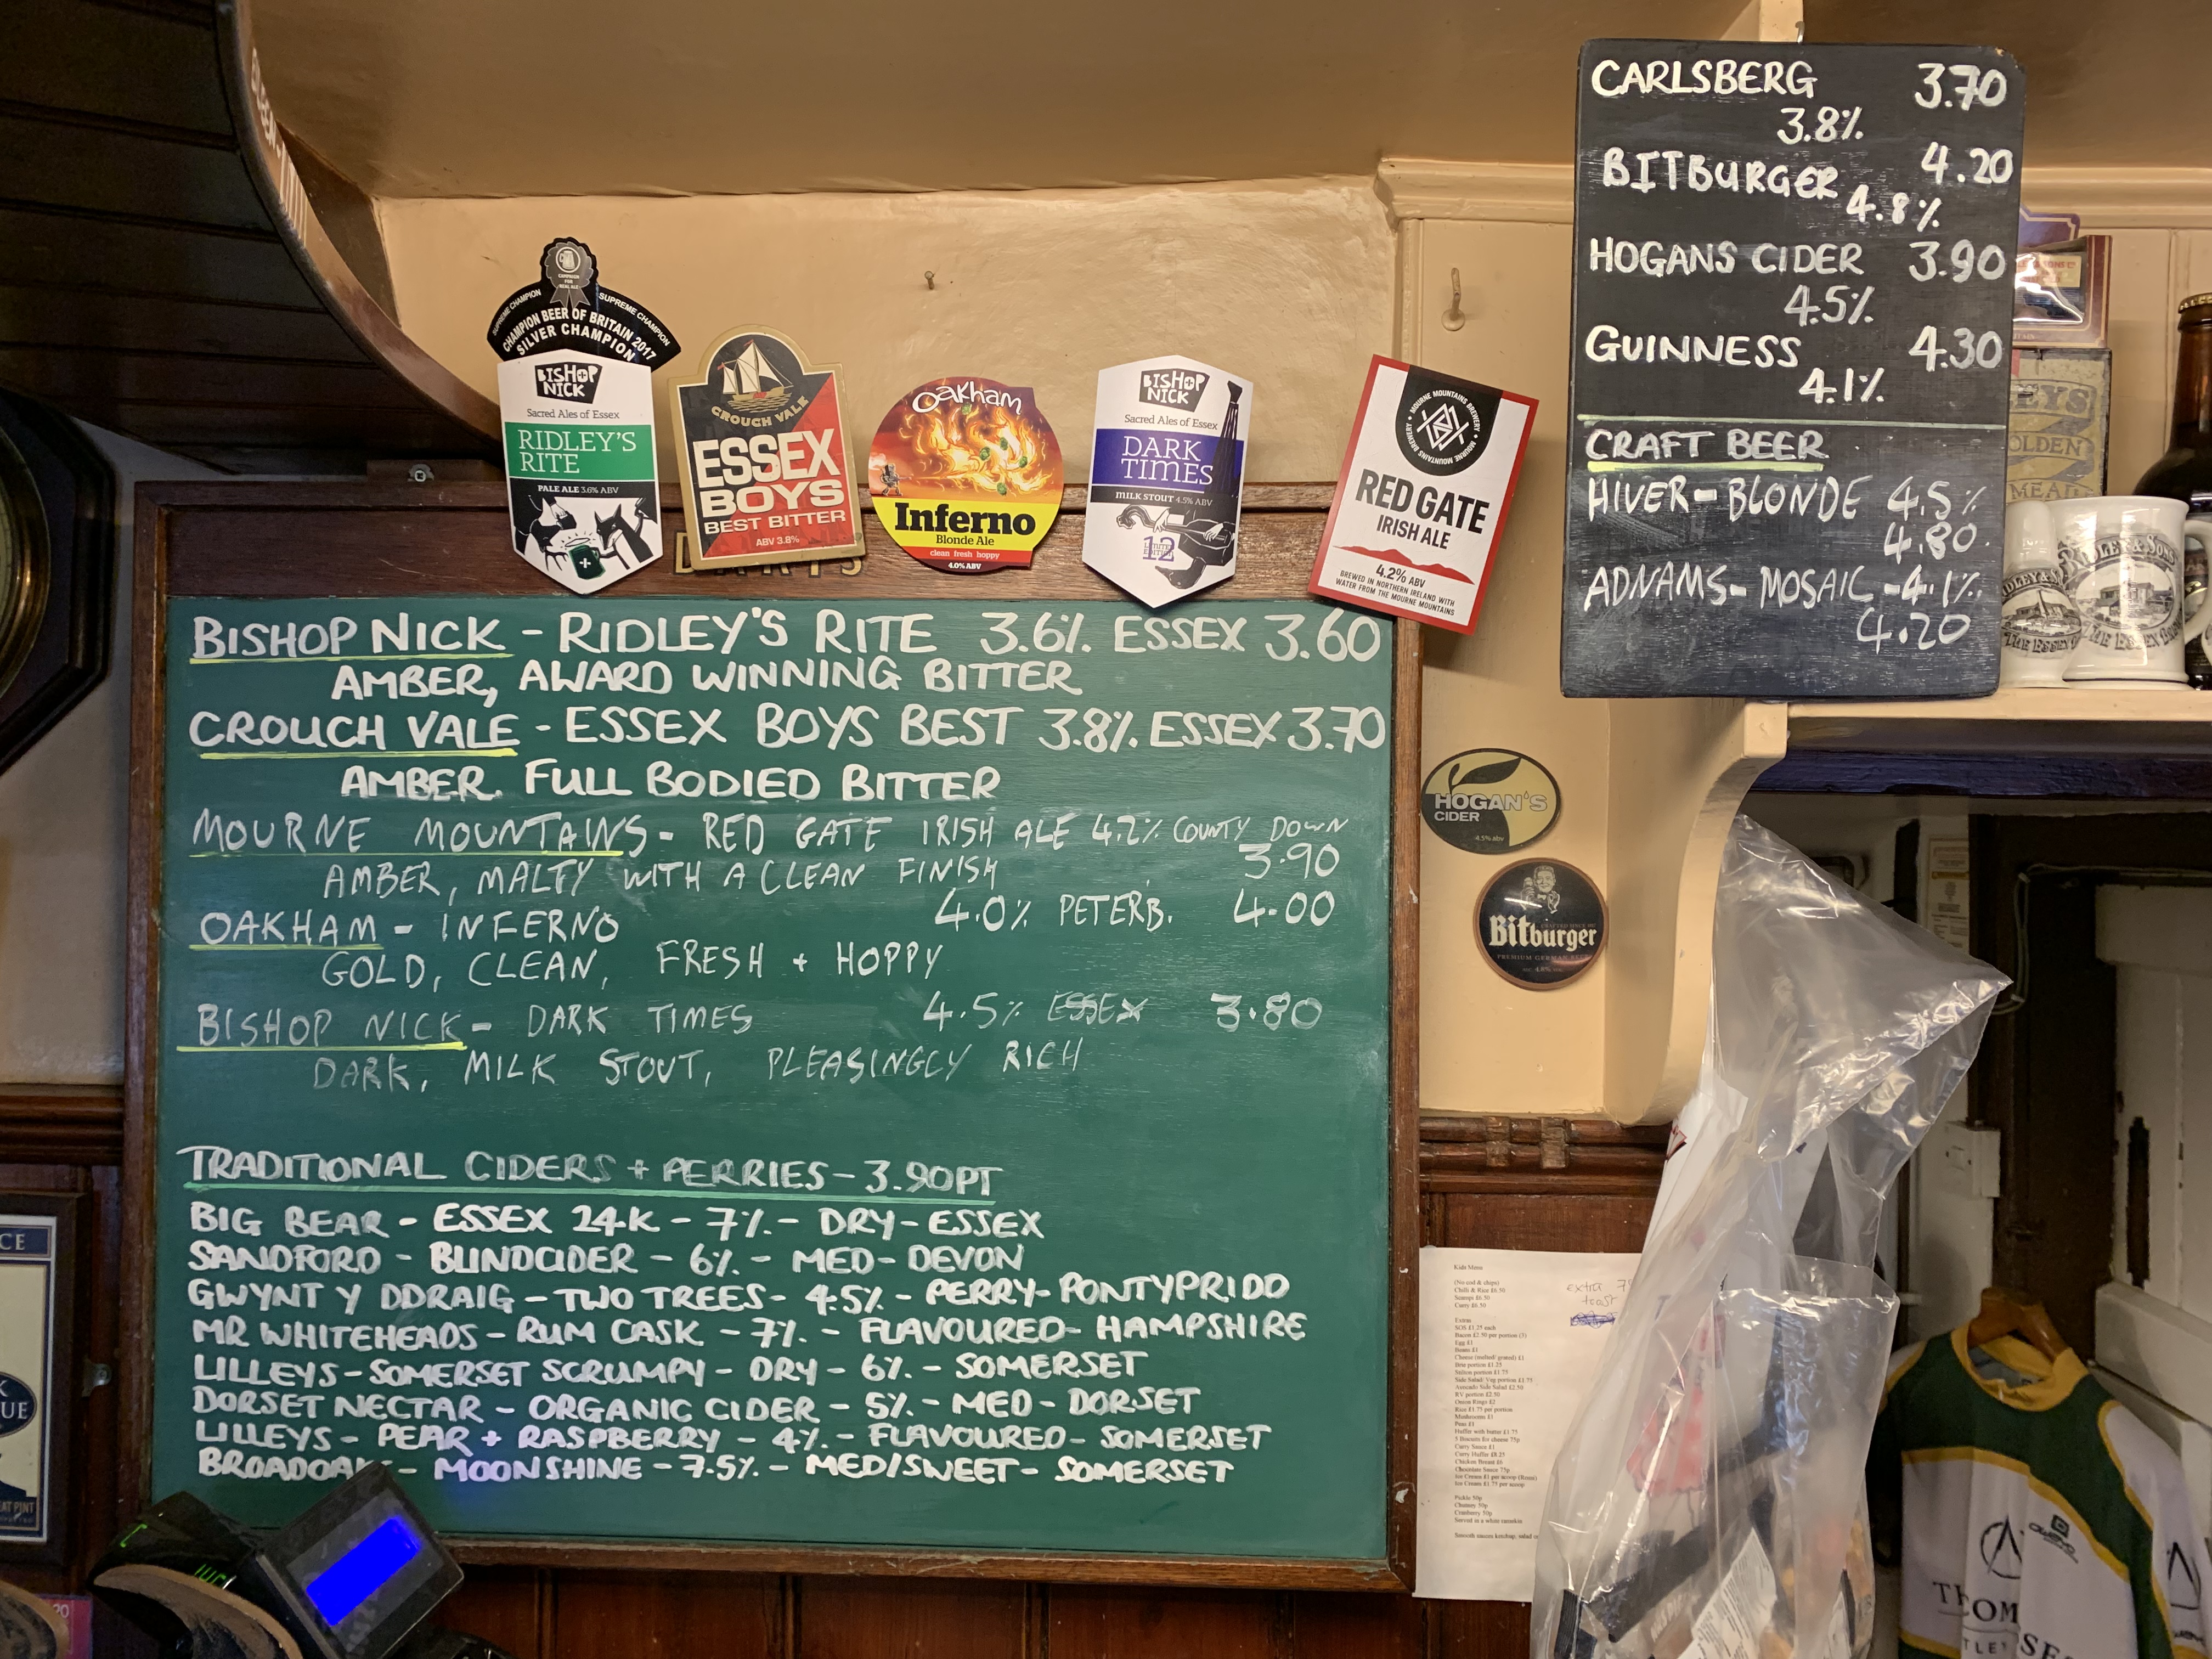 CARLSBERG 3.70
3.8%
BITBURGER 4.20
4.8%
HOGANS CIDER 3.90
4.5%
GUINNESS 4.30
4.1%
CRAFT BEER
HIVER - BLONDE 4.5%
4.80
ADNAMS - MOSAIC - 4.1%
4.20
CAMPAIGN
FOR
REAL ALE
SUPREME CHAMPION SUPREME CHAMPION
CHAMPION BEER OF BRITAIN 2017
SILVER CHAMPION
BISHOP
NICK
Sacred Ales of Essex
RIDLEY'S
RITE
PALE ALE 3.6% ABV
CROUCH VALE
ESSEX
BOYS
BEST BITTER
ABV 3.8%
Oakham
Inferno
Blonde Ale
clean fresh hoppy
4.0% ABV
BISHOP
NICK
Sacred Ales of Essex
DARK
TIMES
MILK STOUT 4.5% ABV
12
MOURNE MOUNTAINS BREWERY
RED GATE
IRISH ALE
4.2% ABV
BREWED IN NORTHERN IRELAND WITH
WATER FROM THE MOURNE MOUNTAINS
BISHOP NICK - RIDLEY'S RITE 3.6% ESSEX 3.60
AMBER, AWARD WINNING BITTER
CROUCH VALE - ESSEX BOYS BEST 3.8% ESSEX 3.70
AMBER. FULL BODIED BITTER
MOURNE MOUNTAINS - RED GATE IRISH ALE 4.2% COUNTY DOWN
AMBER, MALTY WITH A CLEAN FINISH 3.90
OAKHAM - INFERNO 4.0% PETERB. 4.00
GOLD, CLEAN, FRESH + HOPPY
BISHOP NICK - DARK TIMES 4.5% ESSEX 3.80
DARK, MILK STOUT, PLEASINGLY RICH
TRADITIONAL CIDERS + PERRIES - 3.90PT
BIG BEAR - ESSEX 24K - 7% - DRY - ESSEX
SANDFORD - BLINDCIDER - 6% - MED - DEVON
GWYNT Y DDRAIG - TWO TREES - 4.5% - PERRY - PONTYPRIDD
MR WHITEHEADS - RUM CASK - 7% - FLAVOURED - HAMPSHIRE
LILLEYS - SOMERSET SCRUMPY - DRY - 6% - SOMERSET
DORSET NECTAR - ORGANIC CIDER - 5% - MED - DORSET
LILLEYS - PEAR + RASPBERRY - 4% - FLAVOURED - SOMERSET
BROADOAK - MOONSHINE - 7.5% - MED/SWEET - SOMERSET
HOGAN'S
CIDER
4.5% abv
Bitburger
PREMIUM GERMAN BEER
Kids Menu
(No cod & chips)
Chilli & Rice £6.50
Scampi £6.50
Curry £6.50
Extras
Egg £1
Beans £1
Onion Rings £2
Rice £1.75 per portion
Mushrooms £1
Peas £1
Curry Sauce £1
Chicken Breast £6
Chocolate Sauce 75p
Pickle 50p
Chutney 50p
Cranberry 50p
Served in a white ramekin
extra
toast
RIDLEY & SONS